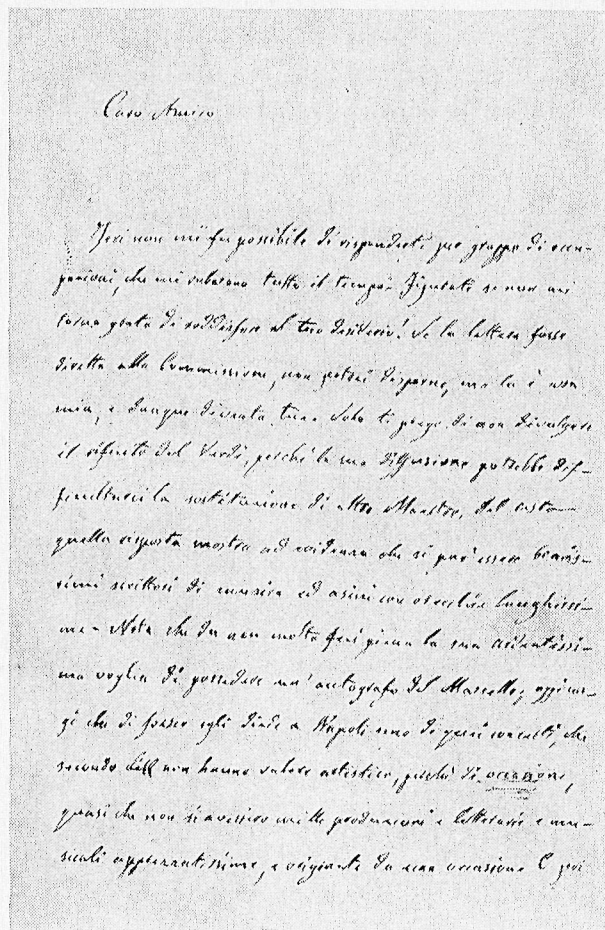 Caro Amico
Jeri non mi fu possibile di risponderti per gruppo di occu-
pazioni, che mi rubarono tutto il tempo. Figurati se non mi
torna grato di soddisfare al tuo desiderio! Se la lettera fosse
diretta alla Commissione, non potrei disporne, ma la è cosa
mia, e dunque diventa tua. Solo ti prego di non divulgare
il rifiuto del Verdi, perchè la sua diffusione potrebbe dif-
ficultarci la sostituzione di altro Maestro. Del resto
quella risposta mostra ad evidenza che si può essere bravis-
simi scrittori di musica ed asini con orecchie lunghissi-
me. Nota che da non molto feci piena la sua ardentissi-
ma voglia di possedere un' autografo del Marcello; aggiun-
gi che di fresco egli diede a Napoli uno di quei concerti, che
secondo lui non hanno valore artistico, perchè di occasione,
quasi che non si avessero mille produzioni e letterarie e mu-
sicali apprezzatissime, e originate da una occasione